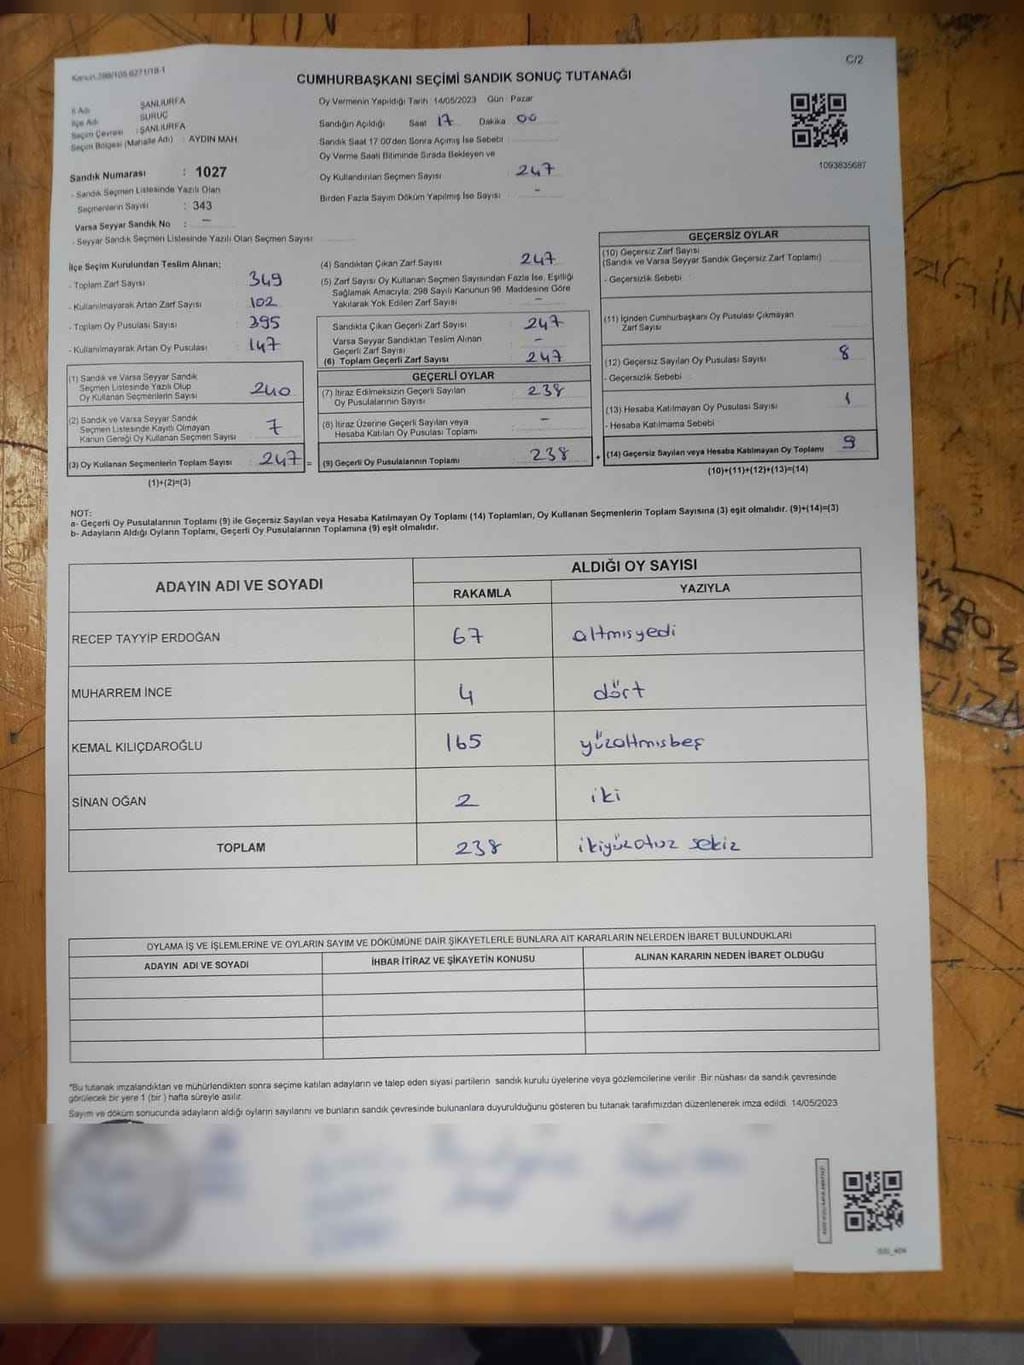 Kanun 298/105 6271/18-1
C/2
CUMHURBAŞKANI SEÇİMİ SANDIK SONUÇ TUTANAĞI
İl Adı : ŞANLIURFA
İlçe Adı : SURUÇ
Seçim Çevresi : ŞANLIURFA
Seçim Bölgesi (Mahalle Adı) : AYDIN MAH
Sandık Numarası : 1027
- Sandık Seçmen Listesinde Yazılı Olan
Seçmenlerin Sayısı : 343
Varsa Seyyar Sandık No : —
- Seyyar Sandık Seçmen Listesinde Yazılı Olan Seçmen Sayısı
Oy Vermenin Yapıldığı Tarih 14/05/2023 Gün Pazar
Sandığın Açıldığı Saat 17 Dakika 00
Sandık Saat 17 00'den Sonra Açımış İse Sebebi
Oy Verme Saati Bitiminde Sırada Bekleyen ve
Oy Kullandırılan Seçmen Sayısı 247
Birden Fazla Sayım Döküm Yapılmış İse Sayısı –
1093835687
İlçe Seçim Kurulundan Teslim Alınan;
- Toplam Zarf Sayısı 349
- Kullanılmayarak Artan Zarf Sayısı 102
- Toplam Oy Pusulası Sayısı 395
- Kullanılmayarak Artan Oy Pusulası 147
(1) Sandık ve Varsa Seyyar Sandık
Seçmen Listesinde Yazılı Olup
Oy Kullanan Seçmenlerin Sayısı 240
(2) Sandık ve Varsa Seyyar Sandık
Seçmen Listesinde Kayıtlı Olmayan
Kanun Gereği Oy Kullanan Seçmen Sayısı 7
(3) Oy Kullanan Seçmenlerin Toplam Sayısı 247 =
(1)+(2)=(3)
(4) Sandıktan Çıkan Zarf Sayısı 247
(5) Zarf Sayısı Oy Kullanan Seçmen Sayısından Fazla İse, Eşitliği
Sağlamak Amacıyla; 298 Sayılı Kanunun 98. Maddesine Göre
Yakılarak Yok Edilen Zarf Sayısı –
Sandıkta Çıkan Geçerli Zarf Sayısı 247
Varsa Seyyar Sandıktan Teslim Alınan
Geçerli Zarf Sayısı –
(6) Toplam Geçerli Zarf Sayısı 247
GEÇERLİ OYLAR
(7) İtiraz Edilmeksizin Geçerli Sayılan
Oy Pusulalarının Sayısı 238
(8) İtiraz Üzerine Geçerli Sayılan veya
Hesaba Katılan Oy Pusulası Toplamı –
(9) Geçerli Oy Pusulalarının Toplamı 238 +
GEÇERSİZ OYLAR
(10) Geçersiz Zarf Sayısı
(Sandık ve Varsa Seyyar Sandık Geçersiz Zarf Toplamı)
- Geçersizlik Sebebi
(11) İçinden Cumhurbaşkanı Oy Pusulası Çıkmayan
Zarf Sayısı
(12) Geçersiz Sayılan Oy Pusulası Sayısı 8
- Geçersizlik Sebebi
(13) Hesaba Katılmayan Oy Pusulası Sayısı 1
- Hesaba Katılmama Sebebi
(14) Geçersiz Sayılan veya Hesaba Katılmayan Oy Toplamı 9
(10)+(11)+(12)+(13)=(14)
NOT:
a- Geçerli Oy Pusulalarının Toplamı (9) ile Geçersiz Sayılan veya Hesaba Katılmayan Oy Toplamı (14) Toplamları, Oy Kullanan Seçmenlerin Toplam Sayısına (3) eşit olmalıdır. (9)+(14)=(3)
b- Adayların Aldığı Oyların Toplamı, Geçerli Oy Pusulalarının Toplamına (9) eşit olmalıdır.
ADAYIN ADI VE SOYADI
ALDIĞI OY SAYISI
RAKAMLA YAZIYLA
RECEP TAYYİP ERDOĞAN 67 altmısyedi
MUHARREM İNCE 4 dört
KEMAL KILIÇDAROĞLU 165 yüzaltmısbeş
SİNAN OĞAN 2 iki
TOPLAM 238 ikiyüzotuz sekiz
OYLAMA İŞ VE İŞLEMLERİNE VE OYLARIN SAYIM VE DÖKÜMÜNE DAİR ŞİKAYETLERLE BUNLARA AİT KARARLARIN NELERDEN İBARET BULUNDUKLARI
ADAYIN ADI VE SOYADI İHBAR İTİRAZ VE ŞİKAYETİN KONUSU ALINAN KARARIN NEDEN İBARET OLDUĞU
"Bu tutanak imzalandıktan ve mühürlendikten sonra seçime katılan adayların ve talep eden siyasi partilerin sandık kurulu üyelerine veya gözlemcilerine verilir .Bir nüshası da sandık çevresinde
görülecek bir yere 1 (bir ) hafta süreyle asılır.
Sayım ve döküm sonucunda adayların aldığı oyların sayılarını ve bunların sandık çevresinde bulunanlara duyurulduğunu gösteren bu tutanak tarafımızdan düzenlenerek imza edildi. 14/05/2023